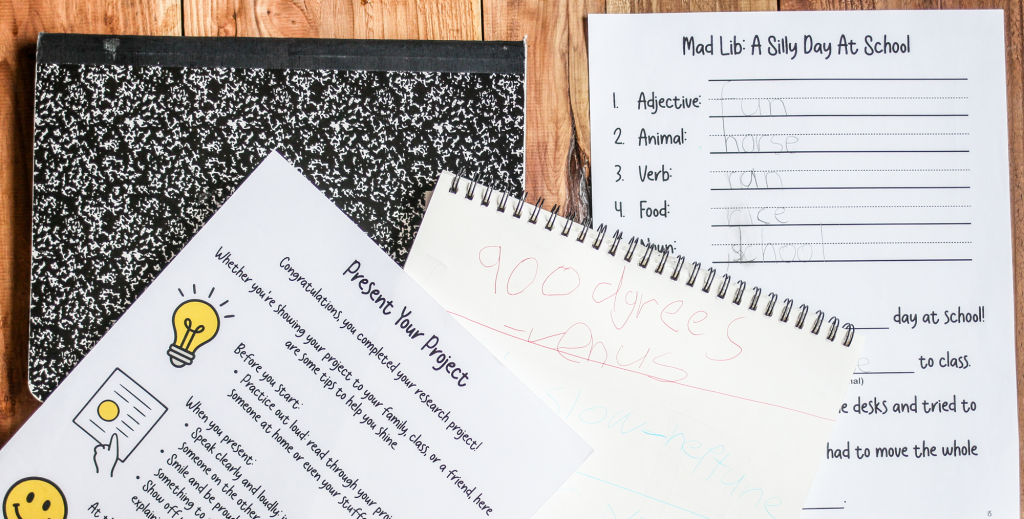 Mad Lib: A Silly Day At School
1. Adjective: fun
2. Animal: horse
3. Verb: ran
4. Food: rice
school
day at school!
to class.
desks and tried to
had to move the whole
Present Your Project
Congratulations, you completed your research project!
Whether you're showing your project to your family, class, or a friend, here
are some tips to help you shine.
Before you start:
• Practice out loud: read through your
someone at home or even your
When you present:
• Speak clearly and loudly
someone on the other
• Smile and be
something to
• Show off
900 dgrees
-venus